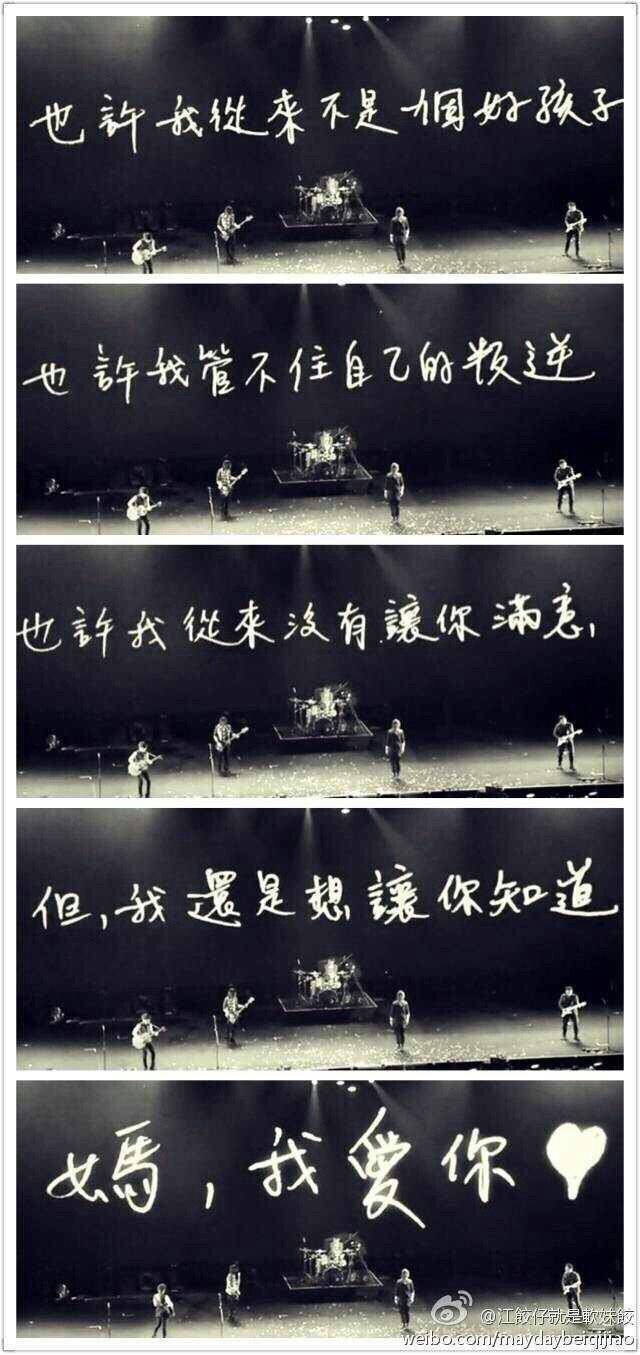 也許我從來不是個好孩子
也許我管不住自己的叛逆
也許我從來沒有讓你滿意,
但,我還是想讓你知道
媽,我愛你
@江餃仔就是軟妹餃
weibo.com/maydayberqijiao